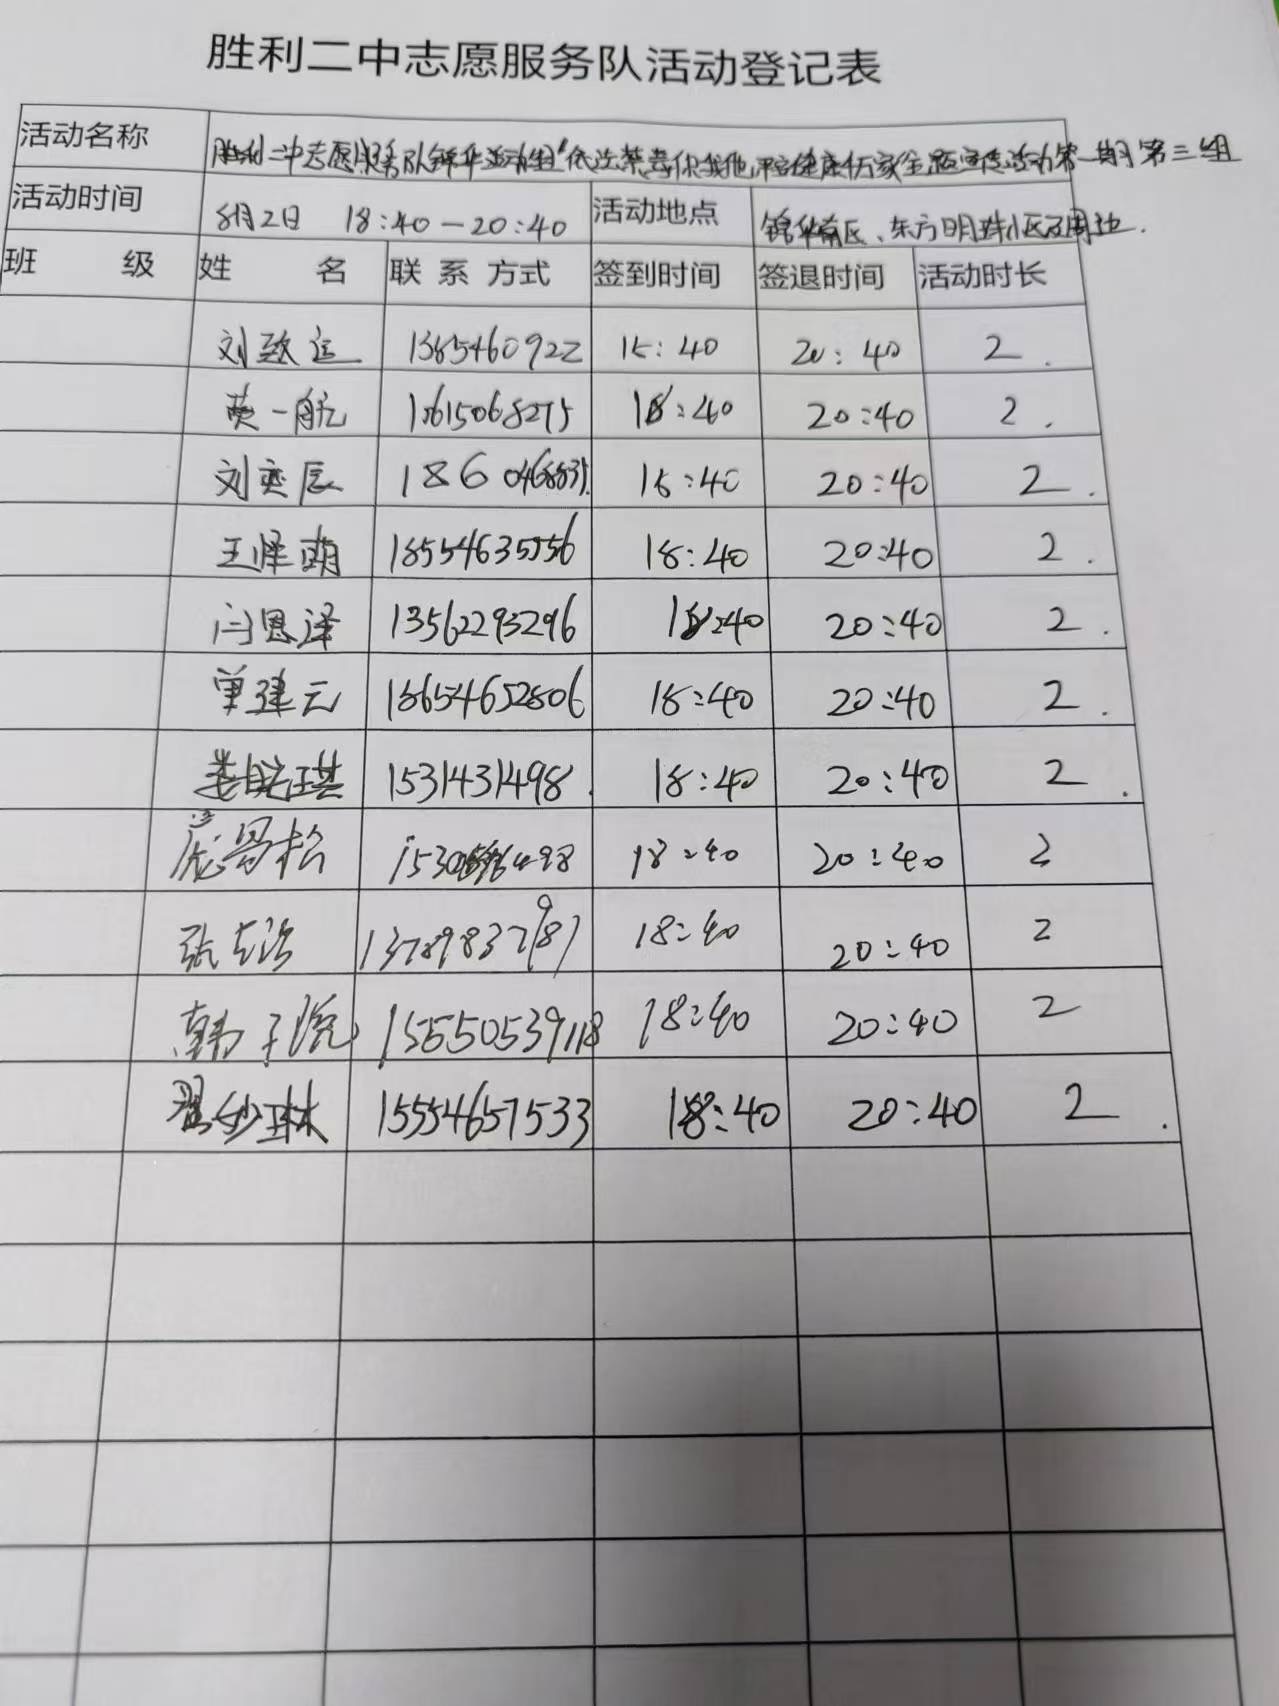 胜利二中志愿服务队活动登记表
活动名称 胜利二中志愿服务队锦华活动组"依法禁毒你我他,平安健康千万家"主题宣传活动第一期第三组
活动时间 8月2日 18:40—20:40 活动地点 锦华南区、东方明珠小区及周边.
班 级 姓 名 联系方式 签到时间 签退时间 活动时长
刘致远 13854609222 18:40 20:40 2.
黄一航 18615068275 18:40 20:40 2.
刘奕辰 186 18:40 20:40 2.
王怿萌 18554635556 18:40 20:40 2.
闫恩泽 13562293296 18:40 20:40 2.
单建元 18654652806 18:40 20:40 2.
1531431498. 18:40 20:40 2.
18:40 20:40 2
张志 18:40 20:40 2
韩子悦 15550539118 18:40 20:40 2
翟妙琳 15554657533 18:40 20:40 2.